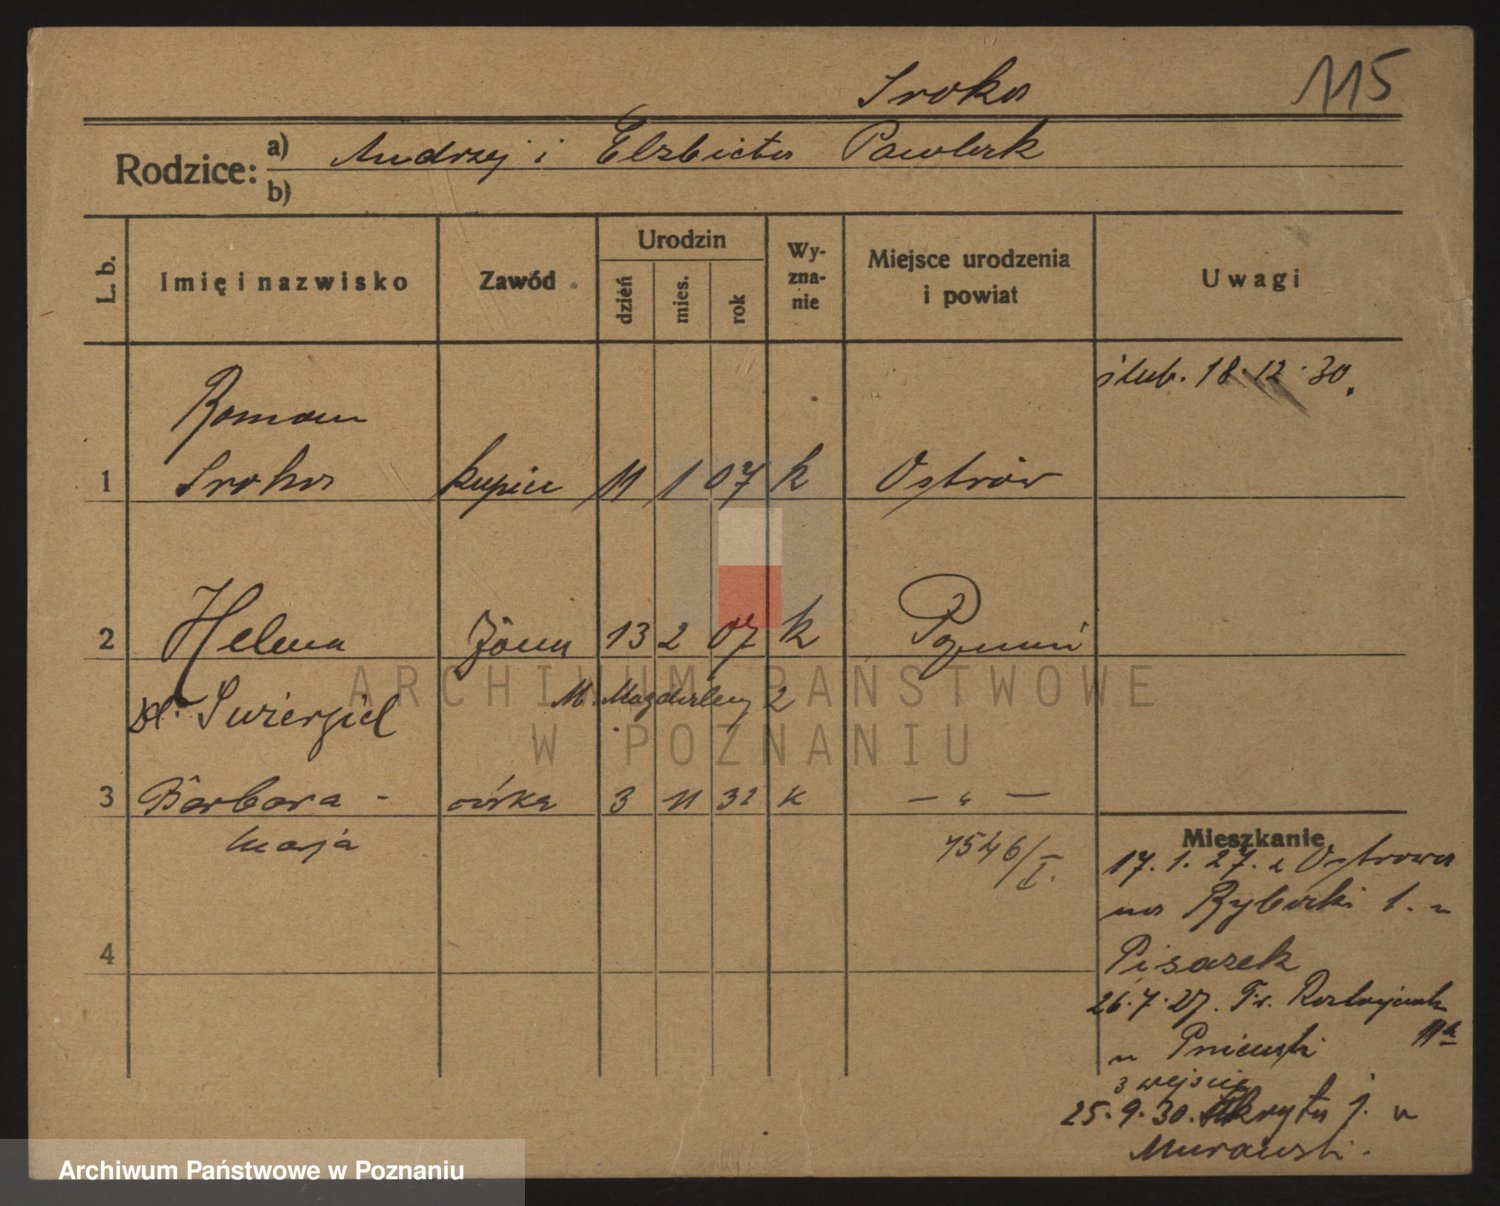 Sroka 115
Rodzice: a) Andrzej i Elzbieta Pawlak
b)
L. b. Imię i nazwisko Zawód Urodzin dzień mies. rok Wyznanie Miejsce urodzenia i powiat Uwagi
ślub. 18.12.30.
Roman
1 Sroka kupiec 11 1 07 k Ostrów
2 Helena żona 13 2 07 k Poznań
M. Magdaleny 2
3 Barbara - córka 3 11 32 k — " —
Maja
7546/I.
4
Mieszkanie
17.1.27. z Ostrowa
na Rybaki 1. u
Pisarek
26.7.27. Fr. Ratajczaka
11a
u Pniewski
3 wejście
25.9.30. Skryta 7. u
Murawski.
ARCHIWUM PAŃSTWOWE
W POZNANIU
Archiwum Państwowe w Poznaniu